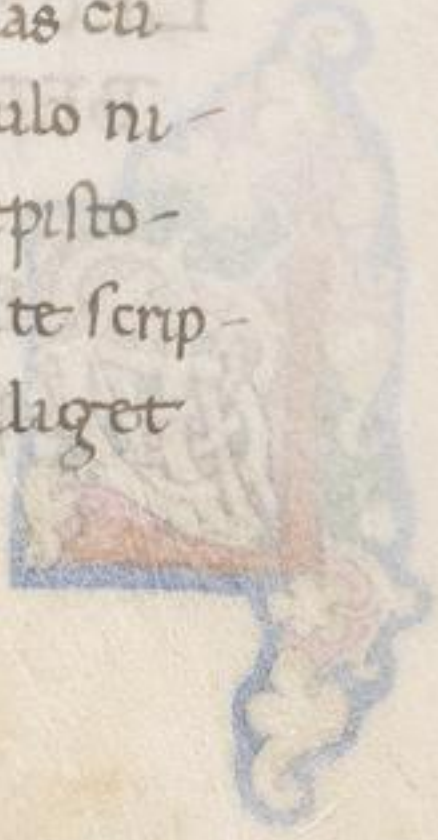 as cū
ulo ni-
pisto-
te scrip-
liget